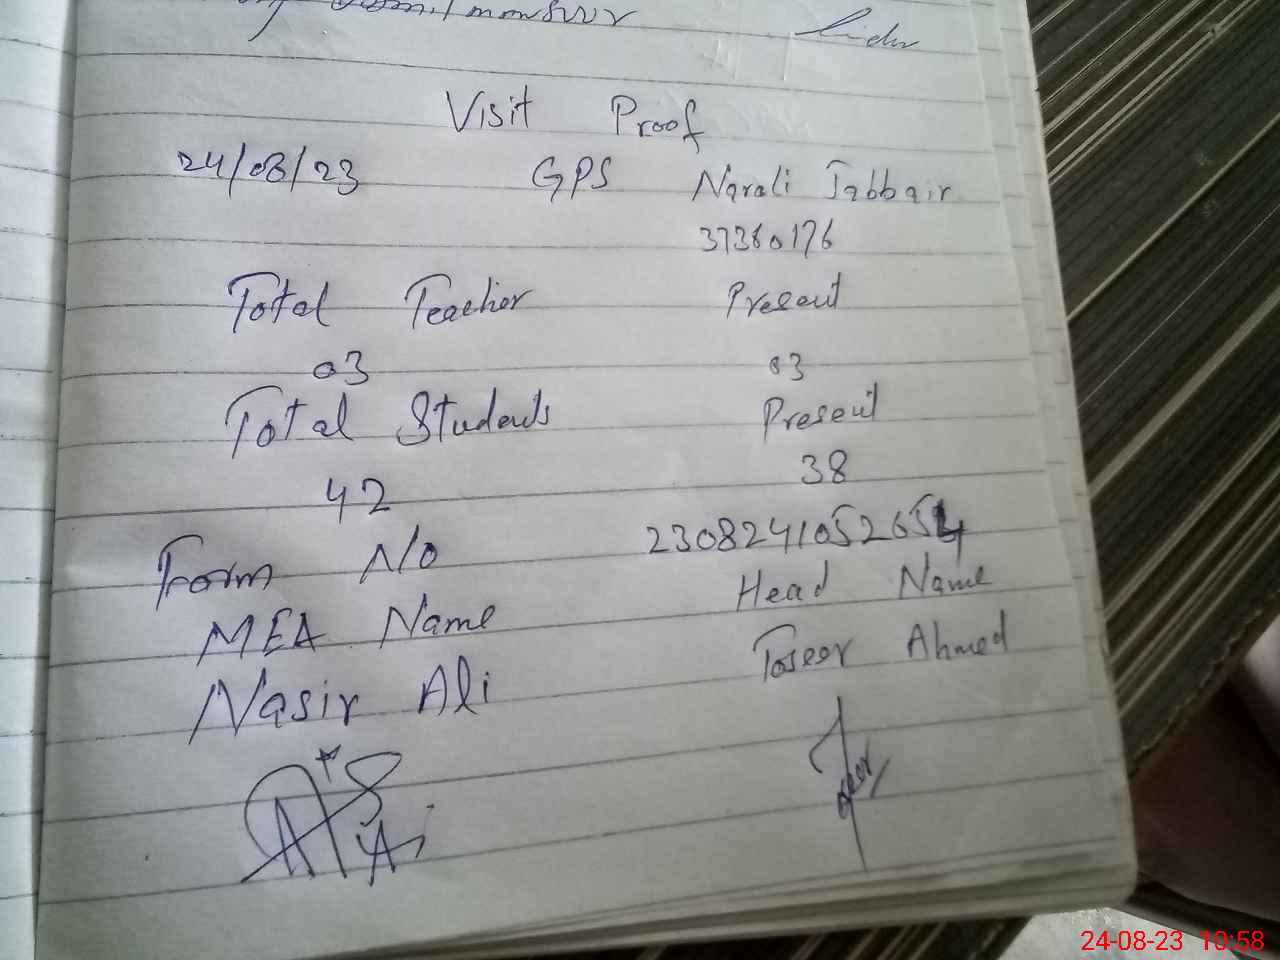 Visit Proof
24/08/23 GPS Narali Jabbair
37380176
Total Teacher Present
03 03
Total Students Present
42 38
Form No 2308241052654
MEA Name Head Name
Nasir Ali Toseer Ahmed
24-08-23 10:58